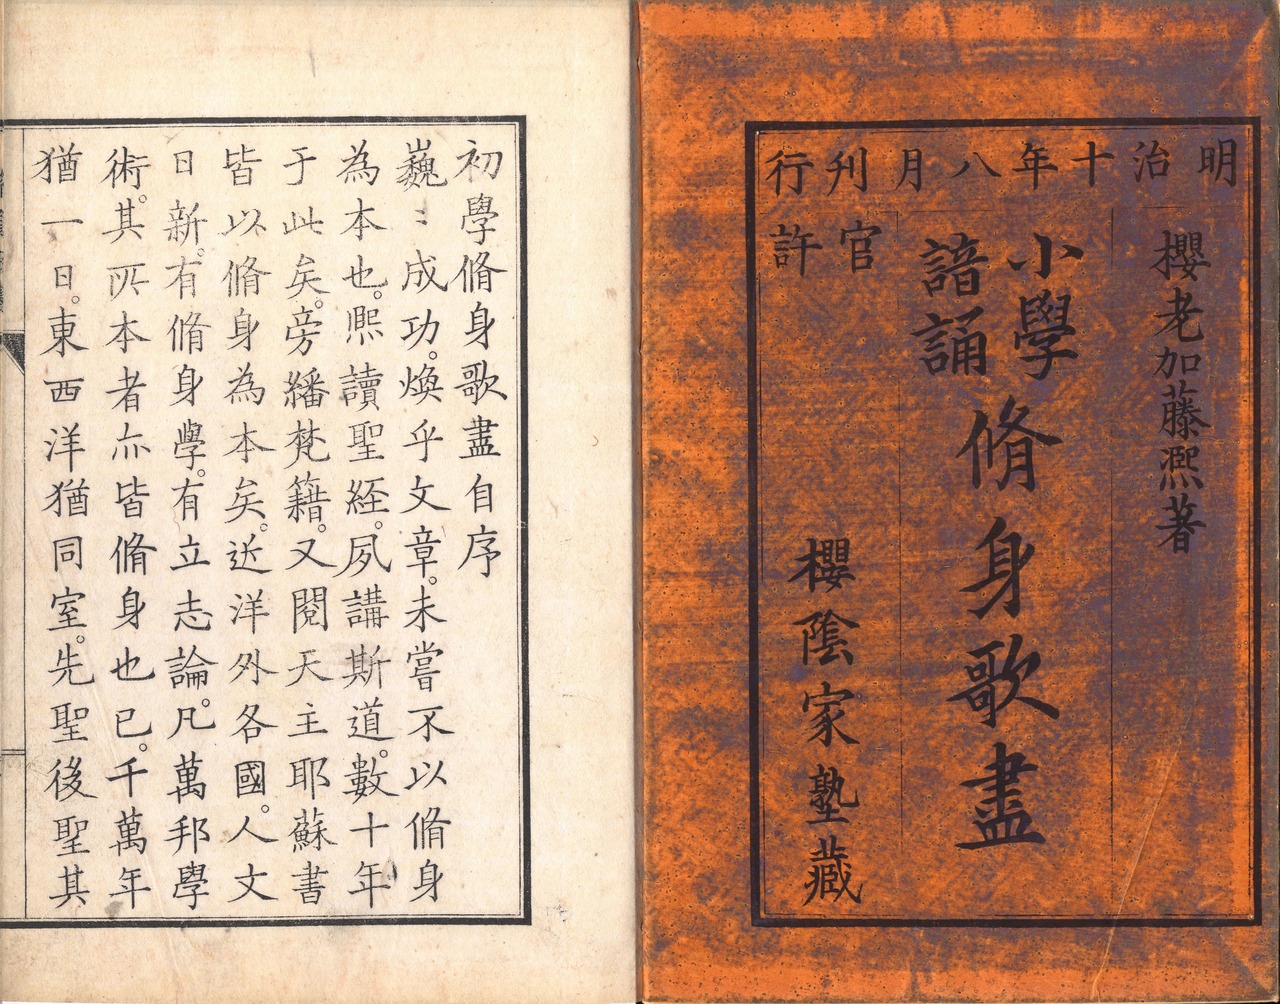 明治十年八月刋行
櫻老加藤熈著
小學
諳誦
脩身歌盡
官許
櫻陰家塾藏
初學脩身歌盡自序
巍〻成功。煥乎文章。未嘗不以脩身
為本也。熈讀聖經。夙講斯道。數十年
于此矣。旁繙梵籍。又閱天主耶蘇書
皆以脩身為本矣。近洋外各國。人文
日新。有脩身學。有立志論。凡萬邦學
術。其所本者亦皆脩身也已。千萬年
猶一日。東西洋猶同室。先聖後聖其